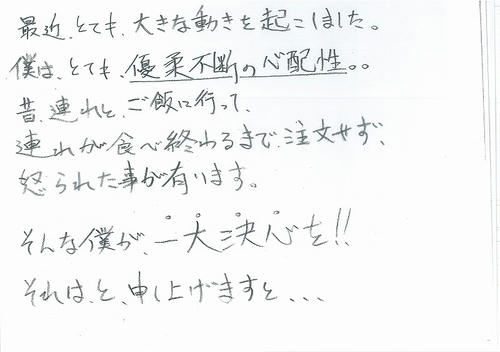 最近、とても、大きな動きを起こしました。
僕は、とても、優柔不断の心配性。。
昔、連れと、ご飯に行って、
連れが食べ終わるまで、注文せず、
怒られた事が有ります。
そんな僕が、一大決心を!!
それは、と、申し上げますと、、、